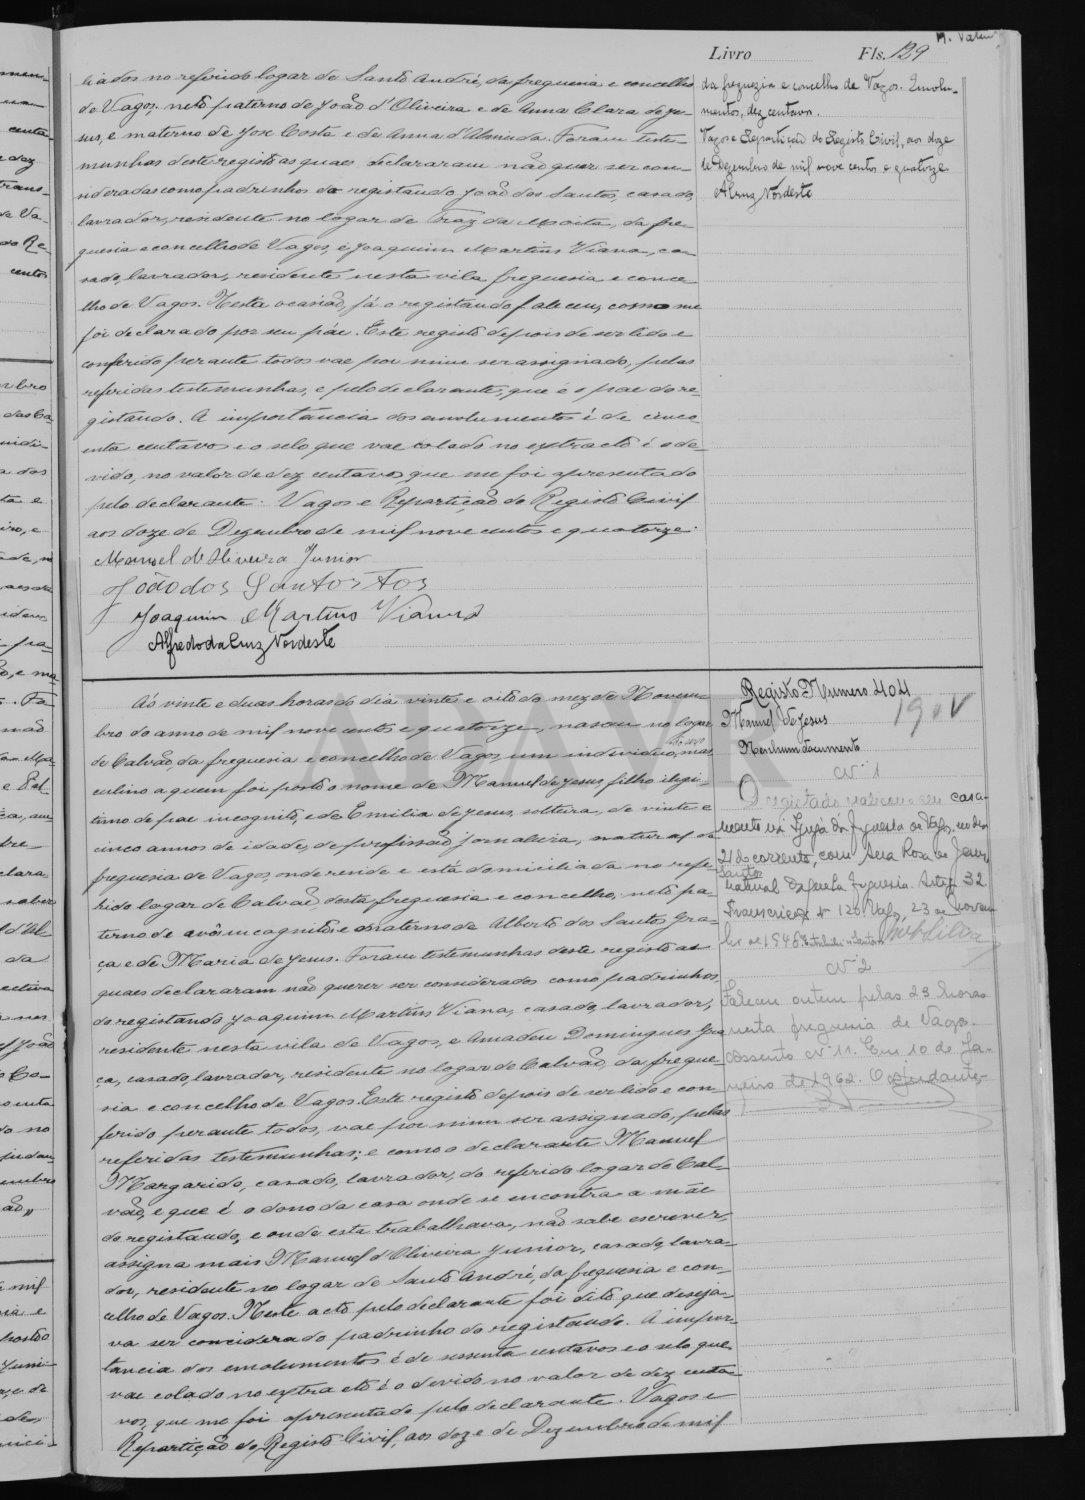 Livro Fls. 129
liados no referido logar de Santo André, da freguesia e concelho
de Vagos, neto paterno de João d'Oliveira e de Anna Clara de Je-
sus, e materno de José Costa e de Anna d'Almeida. Foram teste-
munhas deste registo as quaes declararam não quer ser con-
sideradas como padrinhos do registando, João dos Santos, casado,
lavrador, residente no logar de Traz da Moita, da fre-
guesia e concelho de Vagos, e Joaquim Martins Viana, ca-
sado, lavrador, residente nesta vila freguesia e conce-
lho de Vagos. Nesta ocasião, já o registando faleceu, como me
foi declarado por seu páe. Este registo depois de ser lido e
conferido perante todos vae por mim ser assignado, pelas
referidas testemunhas, e pelo declarante, que é o pae do re-
gistando. A importancia dos emolumentos é de cinco-
enta centavos e o selo que vae colado no extracto é o de-
vido, no valor de dez centavos, que me foi apresentado
pelo declarante. Vagos e Repartição do Registo Civil
aos doze de Dezembro de mil nove centos e quatorze.
Manoel d'Oliveira Junior
João dos Santos Tos
Joaquim Martins Vianna
Alfredo da Cruz Nordeste
da freguezia e concelho de Vagos. Emolu-
mentos, dez centavos.
Vagos e Repartição do Registo Civil, aos doze
de Dezembro de mil nove centos e quatorze.
A Cruz Nordeste
Ás vinte e duas horas do dia vinte e oito do mez de Novem-
bro do anno de mil nove centos e quatorze, nasceu no logar
de Calvão, da freguesia e concelho de Vagos, um individuo, mas-
culino a quem foi posto o nome de Manuel de Jesus, filho ilegi-
timo de pae incognito, e de Emilia de Jesus, solteira, de vinte e
cinco annos de idade, de profissão jornaleira, natural da
freguesia de Vagos, onde reside e está domiciliada no refe-
rido logar de Calvão, desta freguesia e concelho; neto pa-
terno de avôs incognitos e materno de Alberto dos Santos Gra-
ça e de Maria de Jesus. Foram testemunhas deste registo as
quaes declararam não querer ser considerados como padrinhos
do registando Joaquim Martins Viana, casado, lavrador,
residente nesta vila de Vagos, e Amadeu Domingues Gra
ça, casado, lavrador, residente no logar de Calvão, da fregue-
sia e concelho de Vagos. Este registo depois de ser lido e con-
ferido perante todos, vae por mim ser assignado, pelas
referidas testemunhas; e como o declarante Manuel
Margarido, casado, lavrador, do referido logar de Cal-
vão, e que é o dono da casa onde se encontra a mãe
do registando, e onde esta trabalhava, não sabe escrever,
assigna mais Manuel d'Oliveira Junior, casado, lavra-
dor, residente no logar de Santo André, da freguesia e con-
celho de Vagos. Neste acto pelo declarante foi dito que deseja-
va ser conciderado padrinho do registando. A impor-
tancia dos emolumentos é de sessenta centavos e o selo que
vae colado no extracto é o devido no valor de dez centa-
vos, que me foi apresentado pelo declarante. Vagos e
Repartição do Registo Civil, aos doze de Dezembro de mil
Registo Numero 404
Manuel de Jesus
Nenhum documento
Nº 1
O registado casa-
mento na Igreja da freguesia de Vagos, no dia
21 do corrente, com Rosa de Jesus
Santos
natural desta freguesia. 32
Nº 120 Vagos, 23 de Novem-
bro de 1946
Nº 2
Faleceu ontem pelas 23 horas
nesta freguesia de Vagos.
Assento Nº 11. Em 10 de Ja-
neiro de 1962. O Ajudante,